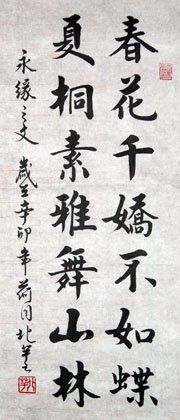 春花千嬌不如蝶
夏桐素雅舞山林
永緣之文 歲在辛卯年荷月北